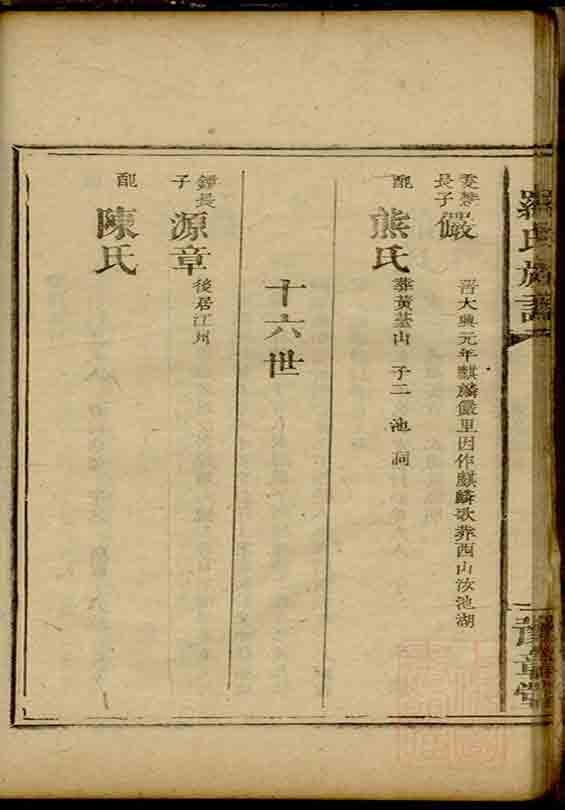 羅氏族譜
豫章堂
長子 儼 晉大興元年麒麟儼里因作麒麟歌葬西山汝池湖
配 熊氏 葬黃荃山 子二 池 洞
十六世
鐔長子 源章 後居江州
配 陳氏